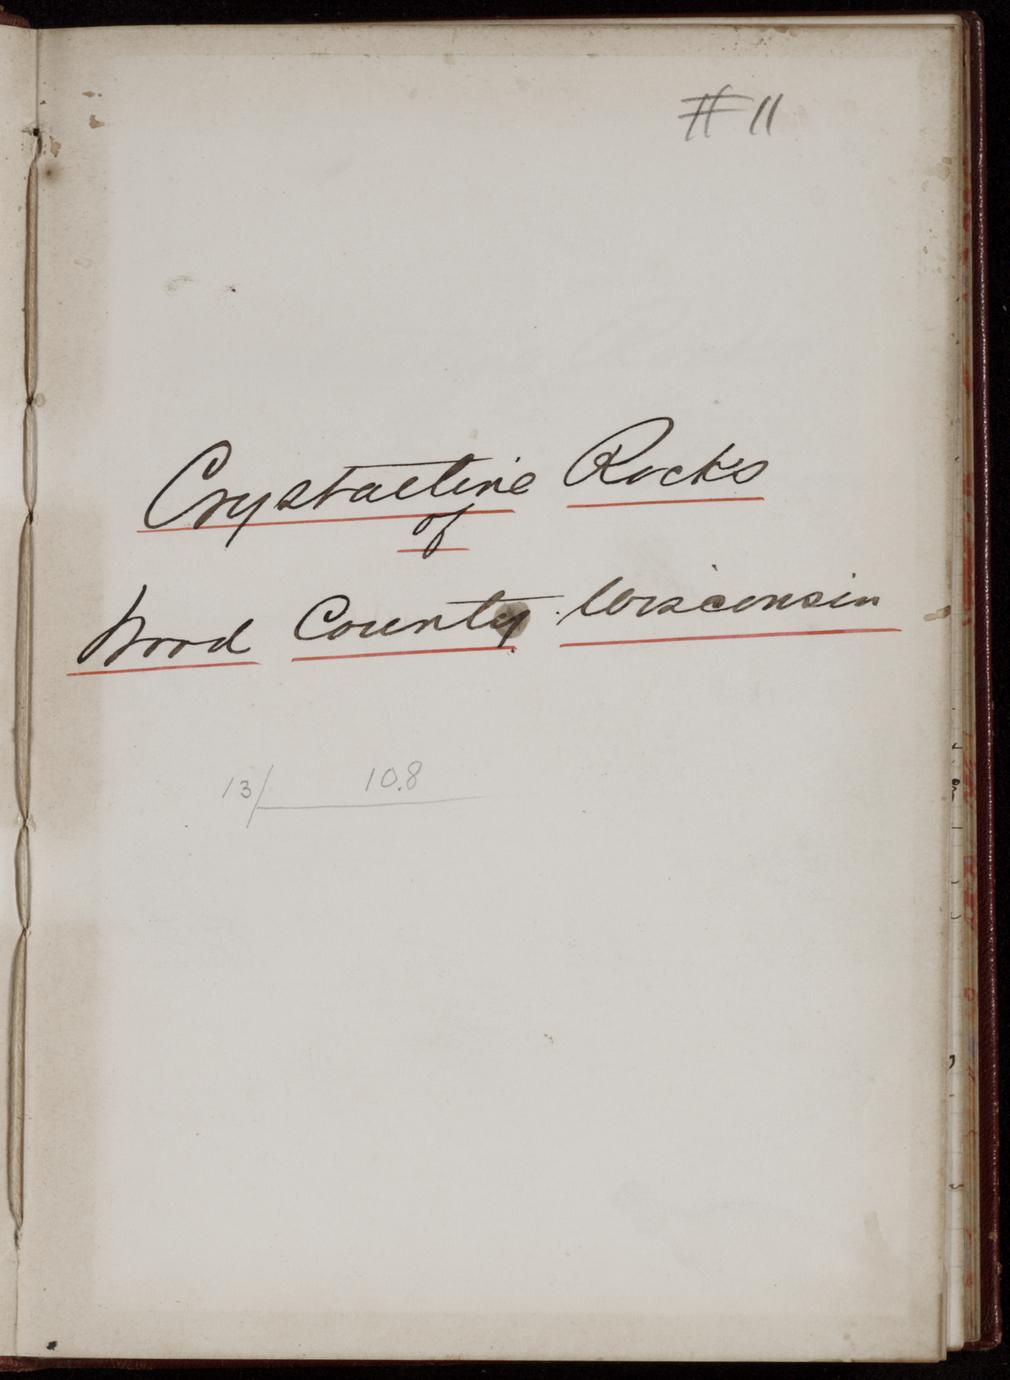 # 11
Crystalline Rocks
of
Wood County Wisconsin
13/ 10.8